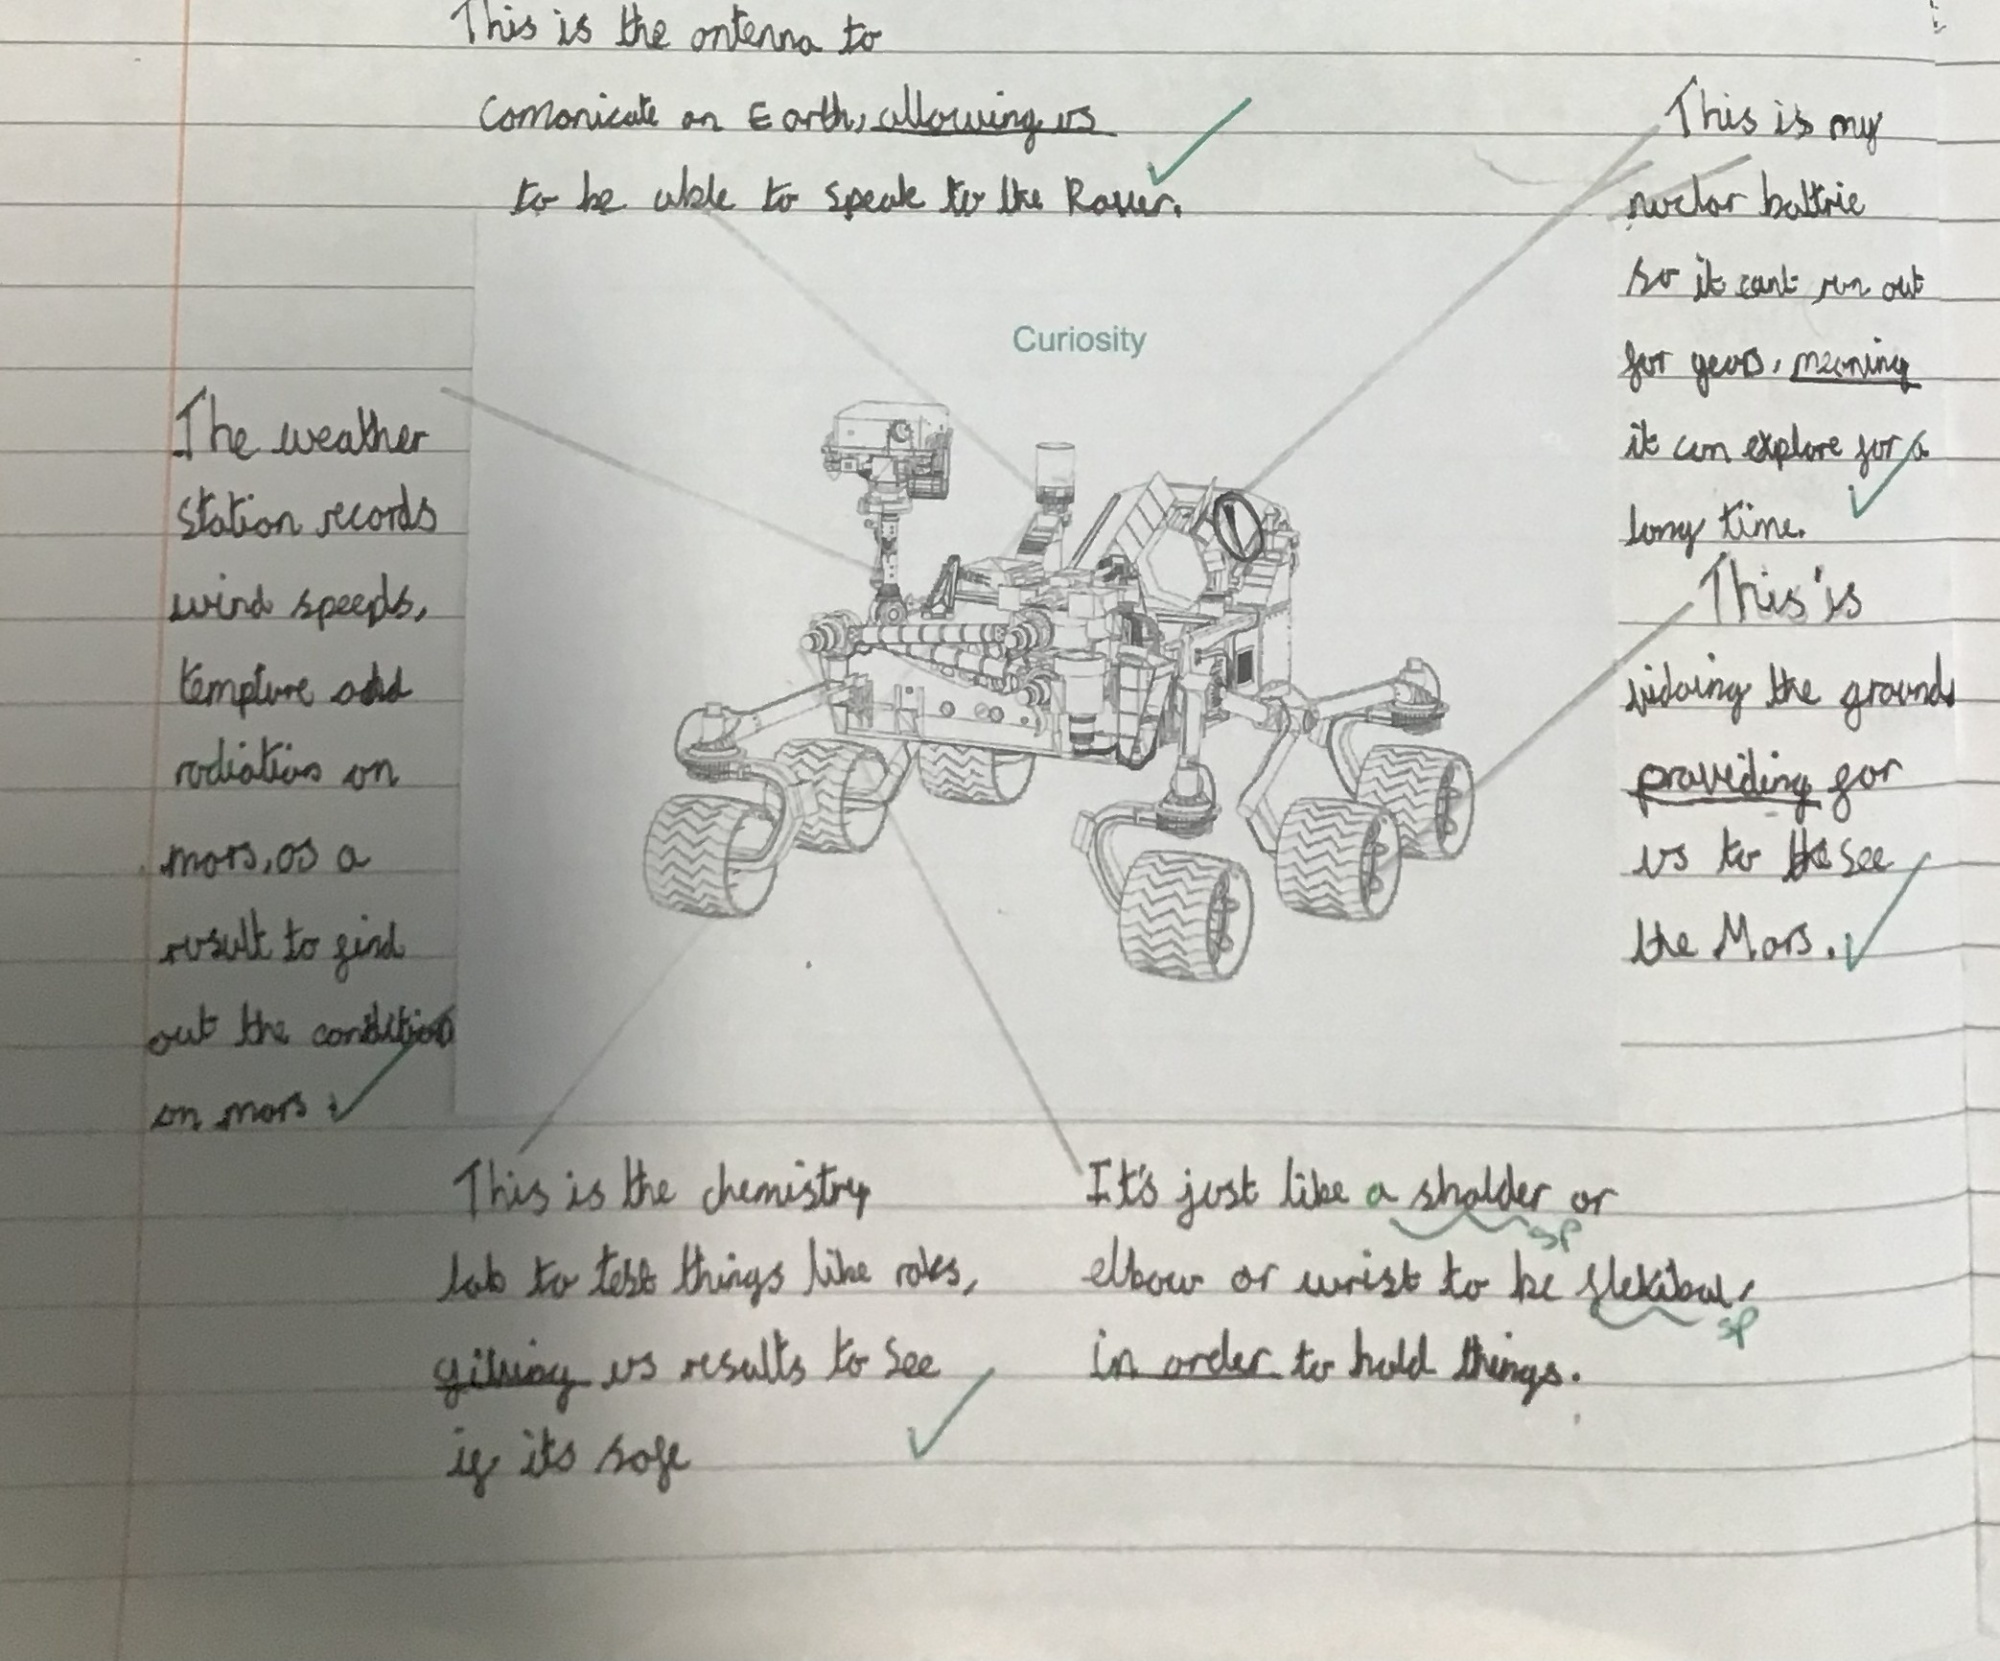 This is the ontenna to
comonicate on Earth, allowing us
to be able to speak to the Rover.
This is my
nuclor battrie
so it cant run out
for years, meaning
it can explore for a
long time.
Curiosity
The weather
station records
wind speeds,
tempture and
radiation on
mars, as a
result to find
out the condition
on mars.
This is
the ground
provēding for
us to see
the Mars.
This is the chemistry
lab to test things like roks,
giving us results to see
if its safe
It's just like a sholder or
sp
elbow or wrist to be flekibul,
sp
in order to hold things.